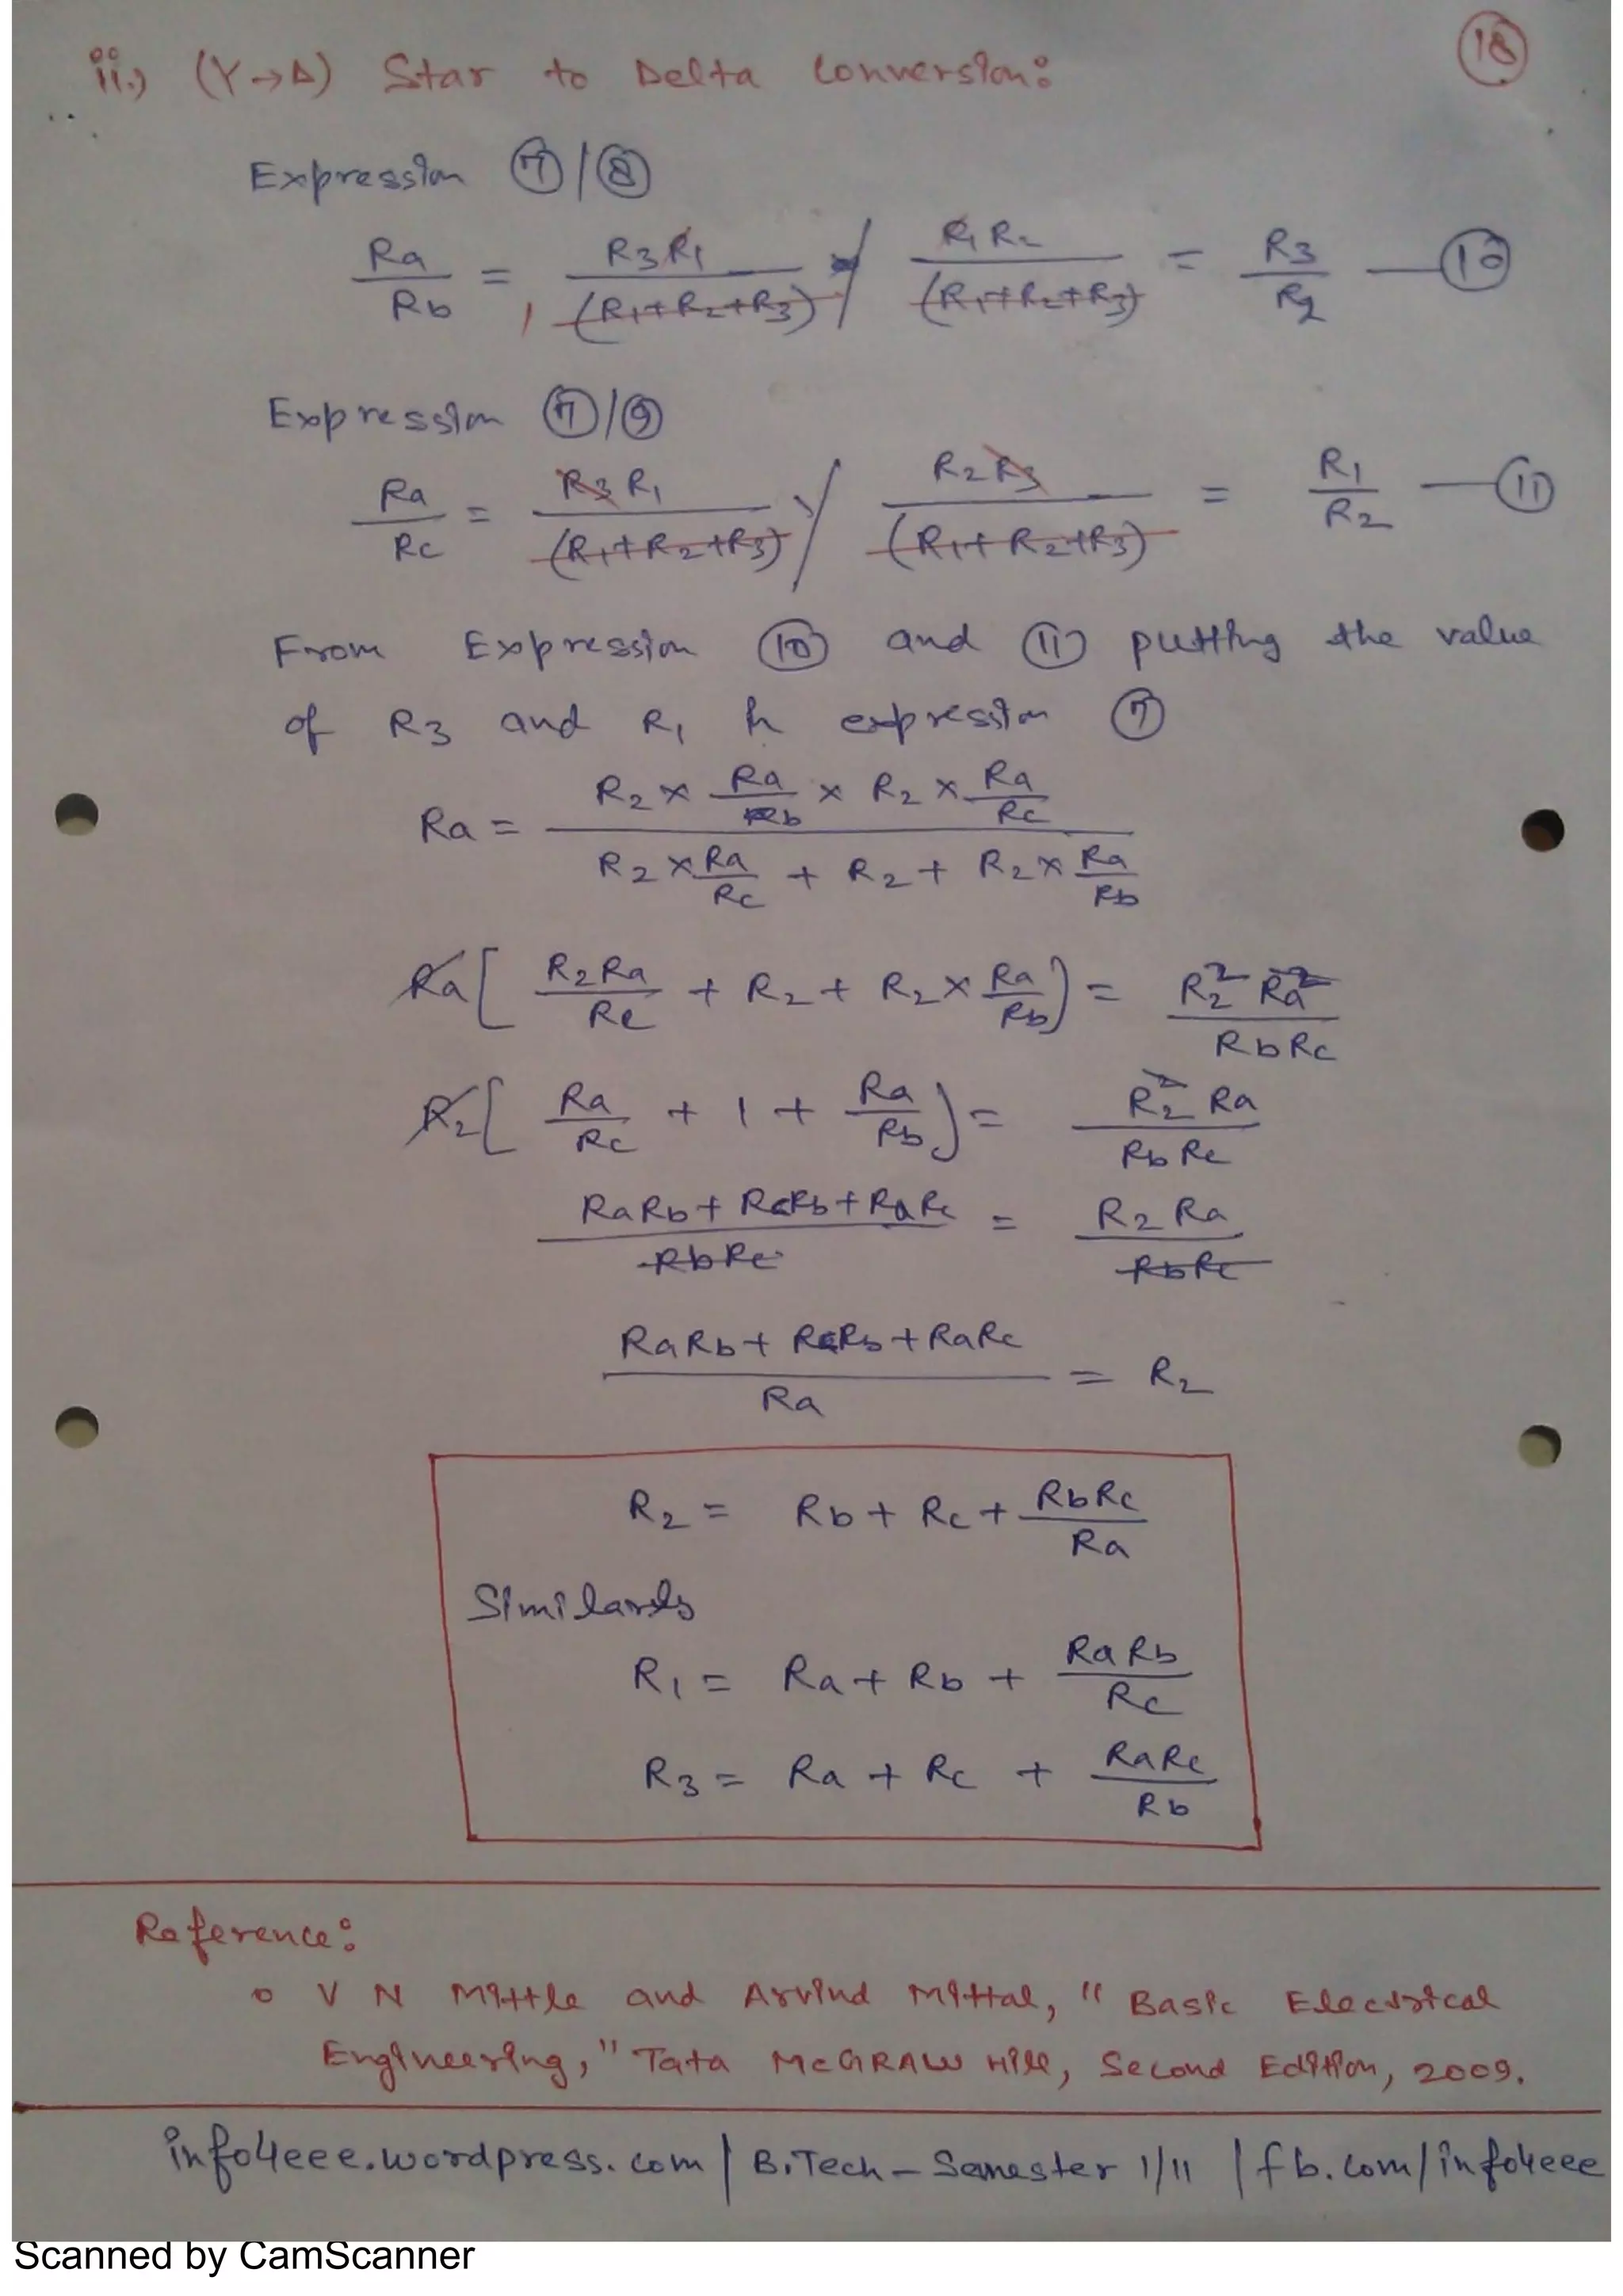 ii.) (Y→Δ) Star to Delta Conversion:
18
Expression ⑦/⑧
Ra/Rb = R3R1/(R1+R2+R3) / R1R2/(R1+R2+R3) = R3/R2 — ⑩
Expression ⑦/⑨
Ra/Rc = R3R1/(R1+R2+R3) / R2R3/(R1+R2+R3) = R1/R2 — ⑪
From Expression ⑩ and ⑪ putting the value
of R3 and R1 in expression ⑦
Ra = (R2 × Ra/Rb × R2 × Ra/Rc) / (R2 × Ra/Rc + R2 + R2 × Ra/Rb)
Ra[R2Ra/Rc + R2 + R2 × Ra/Rb] = R2² Ra²/RbRc
R2[Ra/Rc + 1 + Ra/Rb] = R2² Ra/RbRc
(RaRb + RcRb + RaRc)/RbRc = R2Ra/RbRc
(RaRb + RcRb + RaRc)/Ra = R2
R2 = Rb + Rc + RbRc/Ra
Similarly
R1 = Ra + Rb + RaRb/Rc
R3 = Ra + Rc + RaRc/Rb
Reference:
o V N Mittle and Arvind Mittal, "Basic Electrical
Engineering," Tata McGRAW Hill, Second Edition, 2009.
info4eee.wordpress.com | B.Tech - Semester 1/11 | fb.com/info4eee
Scanned by CamScanner